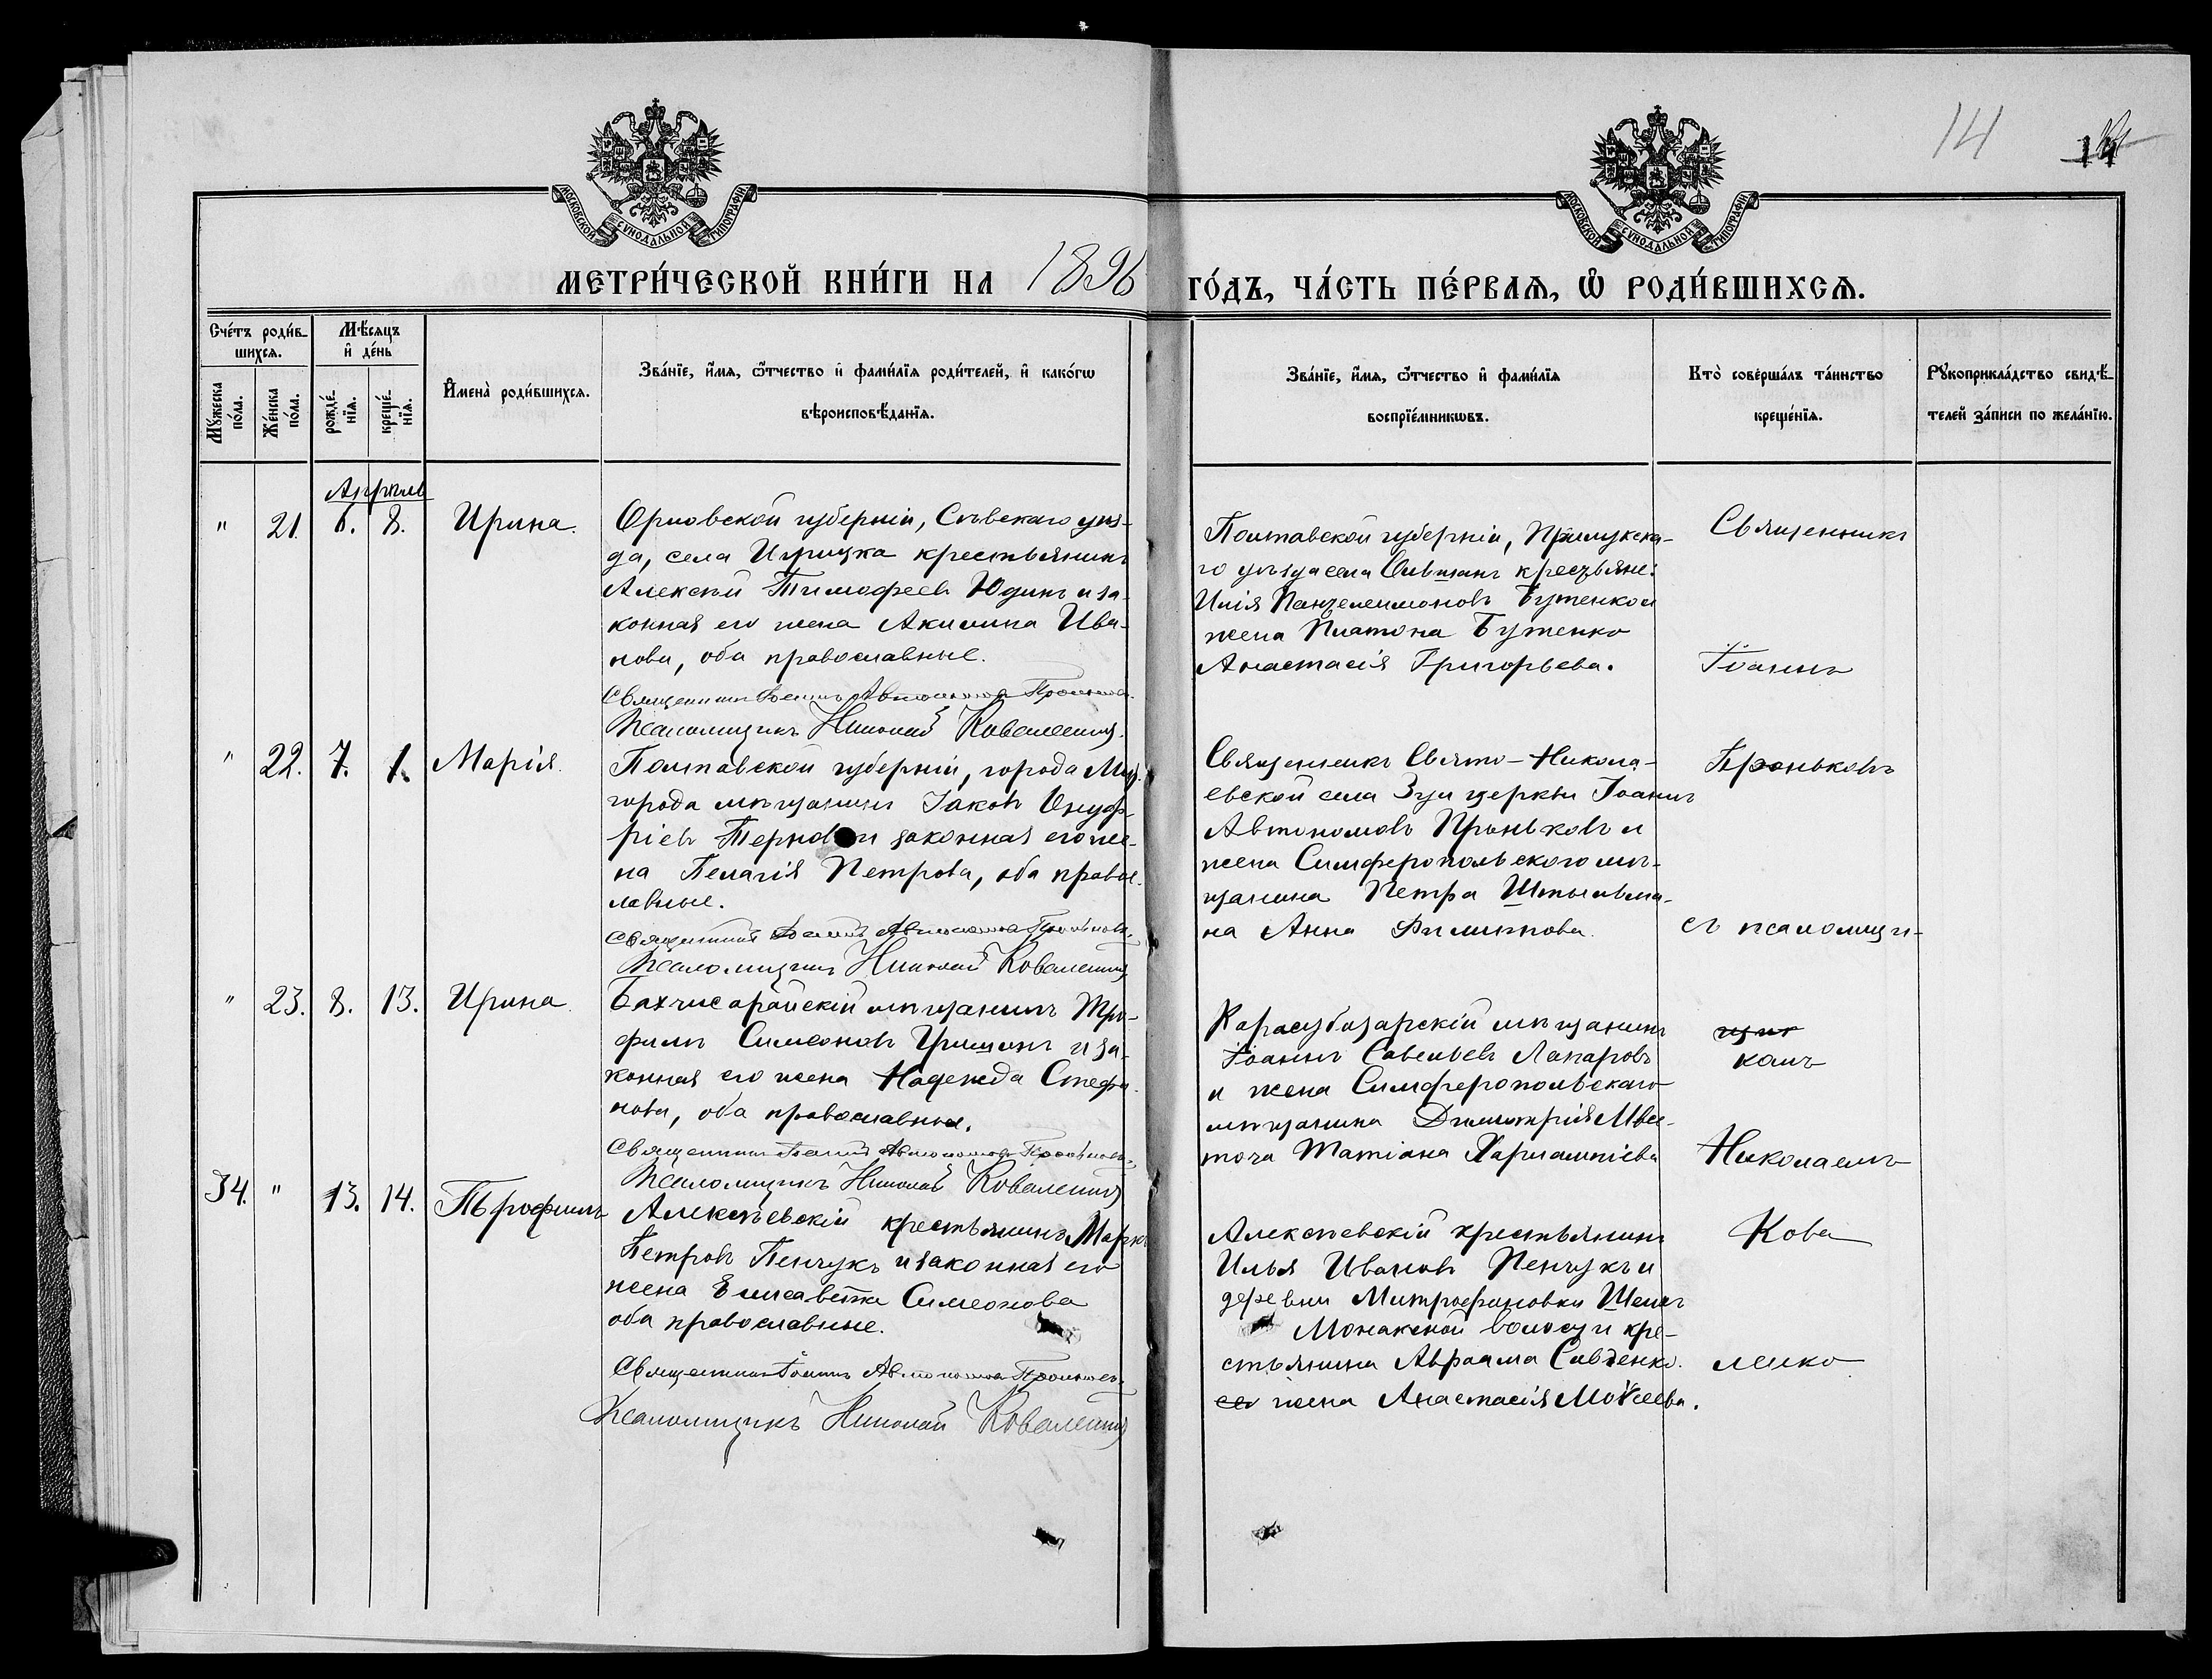 14
МОСКОВСКОЙ СУНОДАЛЬНОЙ ТИПОГРАФІИ
МОСКОВСКОЙ СУНОДАЛЬНОЙ ТИПОГРАФІИ
МЕТРИ́ЧЕСКОЙ КНИ́ГИ НА 1896 ГО́ДЪ, ЧА́СТЬ ПЕ́РВАѦ, Ѡ РОДИ́ВШИХСѦ.
Сче́тъ роди́в-
шихсѧ.
Мꙋ́жеска по́ла.
Же́нска по́ла.
Мѣ́сѧцъ
и де́нь
рожде́-
нїѧ.
креще́-
нїѧ.
И҆мена̀ роди́вшихсѧ.
Зва́нїе, и҆́мѧ, ѻ҆́тчество и҆ фами́лїѧ роди́телей, и҆ како́гѡ
вѣроисповѣ́данїѧ.
Зва́нїе, и҆́мѧ, ѻ҆́тчество и҆ фами́лїѧ
воспрїе́мникѡвъ.
Кто̀ соверша́лъ та́инство
креще́нїѧ.
Рꙋкоприкла́дство свидѣ́-
телей за́писи по жела́нїю.
Апрѣль
" 21. 6. 8. Ирина.
Орловской губерніи, Сѣвскаго уѣз-
да, села Игрицка крестьянинъ
Алексѣй Тимофеевъ Юдинъ и за-
конная его жена Акилина Ива-
нова, оба православные.
Священникъ Іоаннъ Автономовъ Проньковъ
Псаломщикъ Николай Коваленко
Полтавской губерніи, Прилукска-
го уѣзда села крестьяне:
Илія Пантелеимоновъ Бутенко и
жена Платона Бутенко
Анастасія Григорьева.
Священникъ
Іоаннъ
" 22. 7. Марія.
Полтавской губерніи, города Мир-
города мѣщанинъ Іаковъ Онуф-
ріевъ и законная его же-
на Пелагія Петрова, оба правос-
лавные.
Священникъ Іоаннъ Автономовъ Проньковъ
Псаломщикъ Николай Коваленко
Священникъ Свято-Никола-
евской села Зуи церкви Іоаннъ
Автономовъ Проньковъ и
жена Симферопольского мѣ-
щанина Петра
на Анна Филиппова.
Проньковъ
съ псаломщи-
" 23. 8. 13. Ирина
Бахчисарайскій мѣщанинъ Тро-
фимъ Симеоновъ Гришинъ и за-
конная его жена Надежда Стефа-
нова, оба православные.
Священникъ Іоаннъ Автономовъ Проньковъ
Псаломщикъ Николай Коваленко
Карасубазарскій мѣщанинъ
Іоаннъ Савельевъ Макаровъ
и жена Симферопольскаго
мѣщанина Димитрія
Татіана Харлампіева
комъ
Николаемъ
34. " 13. 14. Трофимъ
Алексѣевскій крестьянинъ Маркъ
Петровъ Пенчукъ и законная его
жена Елисавета Симеонова
оба православные.
Священникъ Іоаннъ Автономовъ Проньковъ
Псаломщикъ Николай Коваленко
Алексѣевскій крестьянинъ
Илья Ивановъ Пенчукъ и
деревни Митрофановки
волости кре-
стьянина Авраама Савченко.
жена Анастасія Моѵсеева.
Кова
ленко